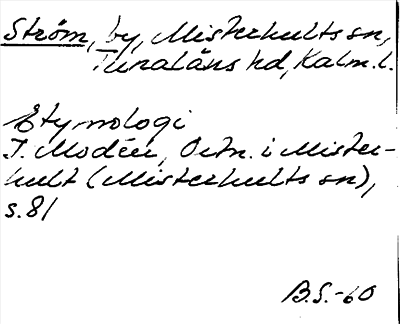 Ström, by, Misterhults sn,
Tunaläns hd, Kalm. l.
Etymologi
I. Modéer, Ortn. i Mister-
hult (Misterhults sn),
s. 81
B.S.-60